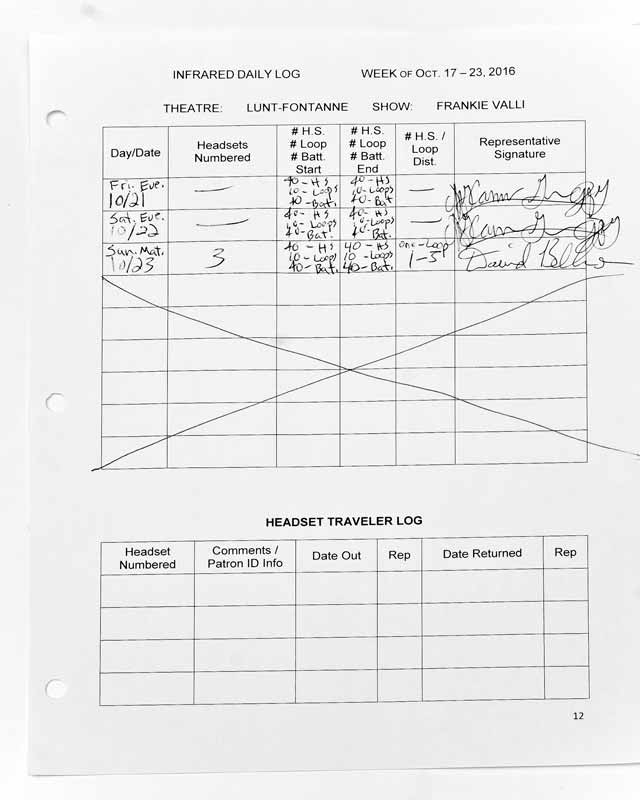 INFRARED DAILY LOG WEEK OF OCT. 17 – 23, 2016
THEATRE: LUNT-FONTANNE SHOW: FRANKIE VALLI
Day/Date
Headsets
Numbered
# H.S.
# Loop
# Batt.
Start
# H.S.
# Loop
# Batt.
End
# H.S. /
Loop
Dist.
Representative
Signature
Fri. Eve.
10/21
—
40 - HS
10 - Loops
40 - Bat.
40 - HS
10 - Loops
40 - Bat
—
Sat. Eve.
10/22
—
40 - HS
10 - Loops
40 - Bat.
40 - HS
10 - Loops
40 - Bat.
—
Sun. Mat.
10/23
3
40 - HS
10 - Loops
40 - Bat.
40 - HS
10 - Loops
40 - Bat.
one-Loop
David
HEADSET TRAVELER LOG
Headset
Numbered
Comments /
Patron ID Info
Date Out
Rep
Date Returned
Rep
12